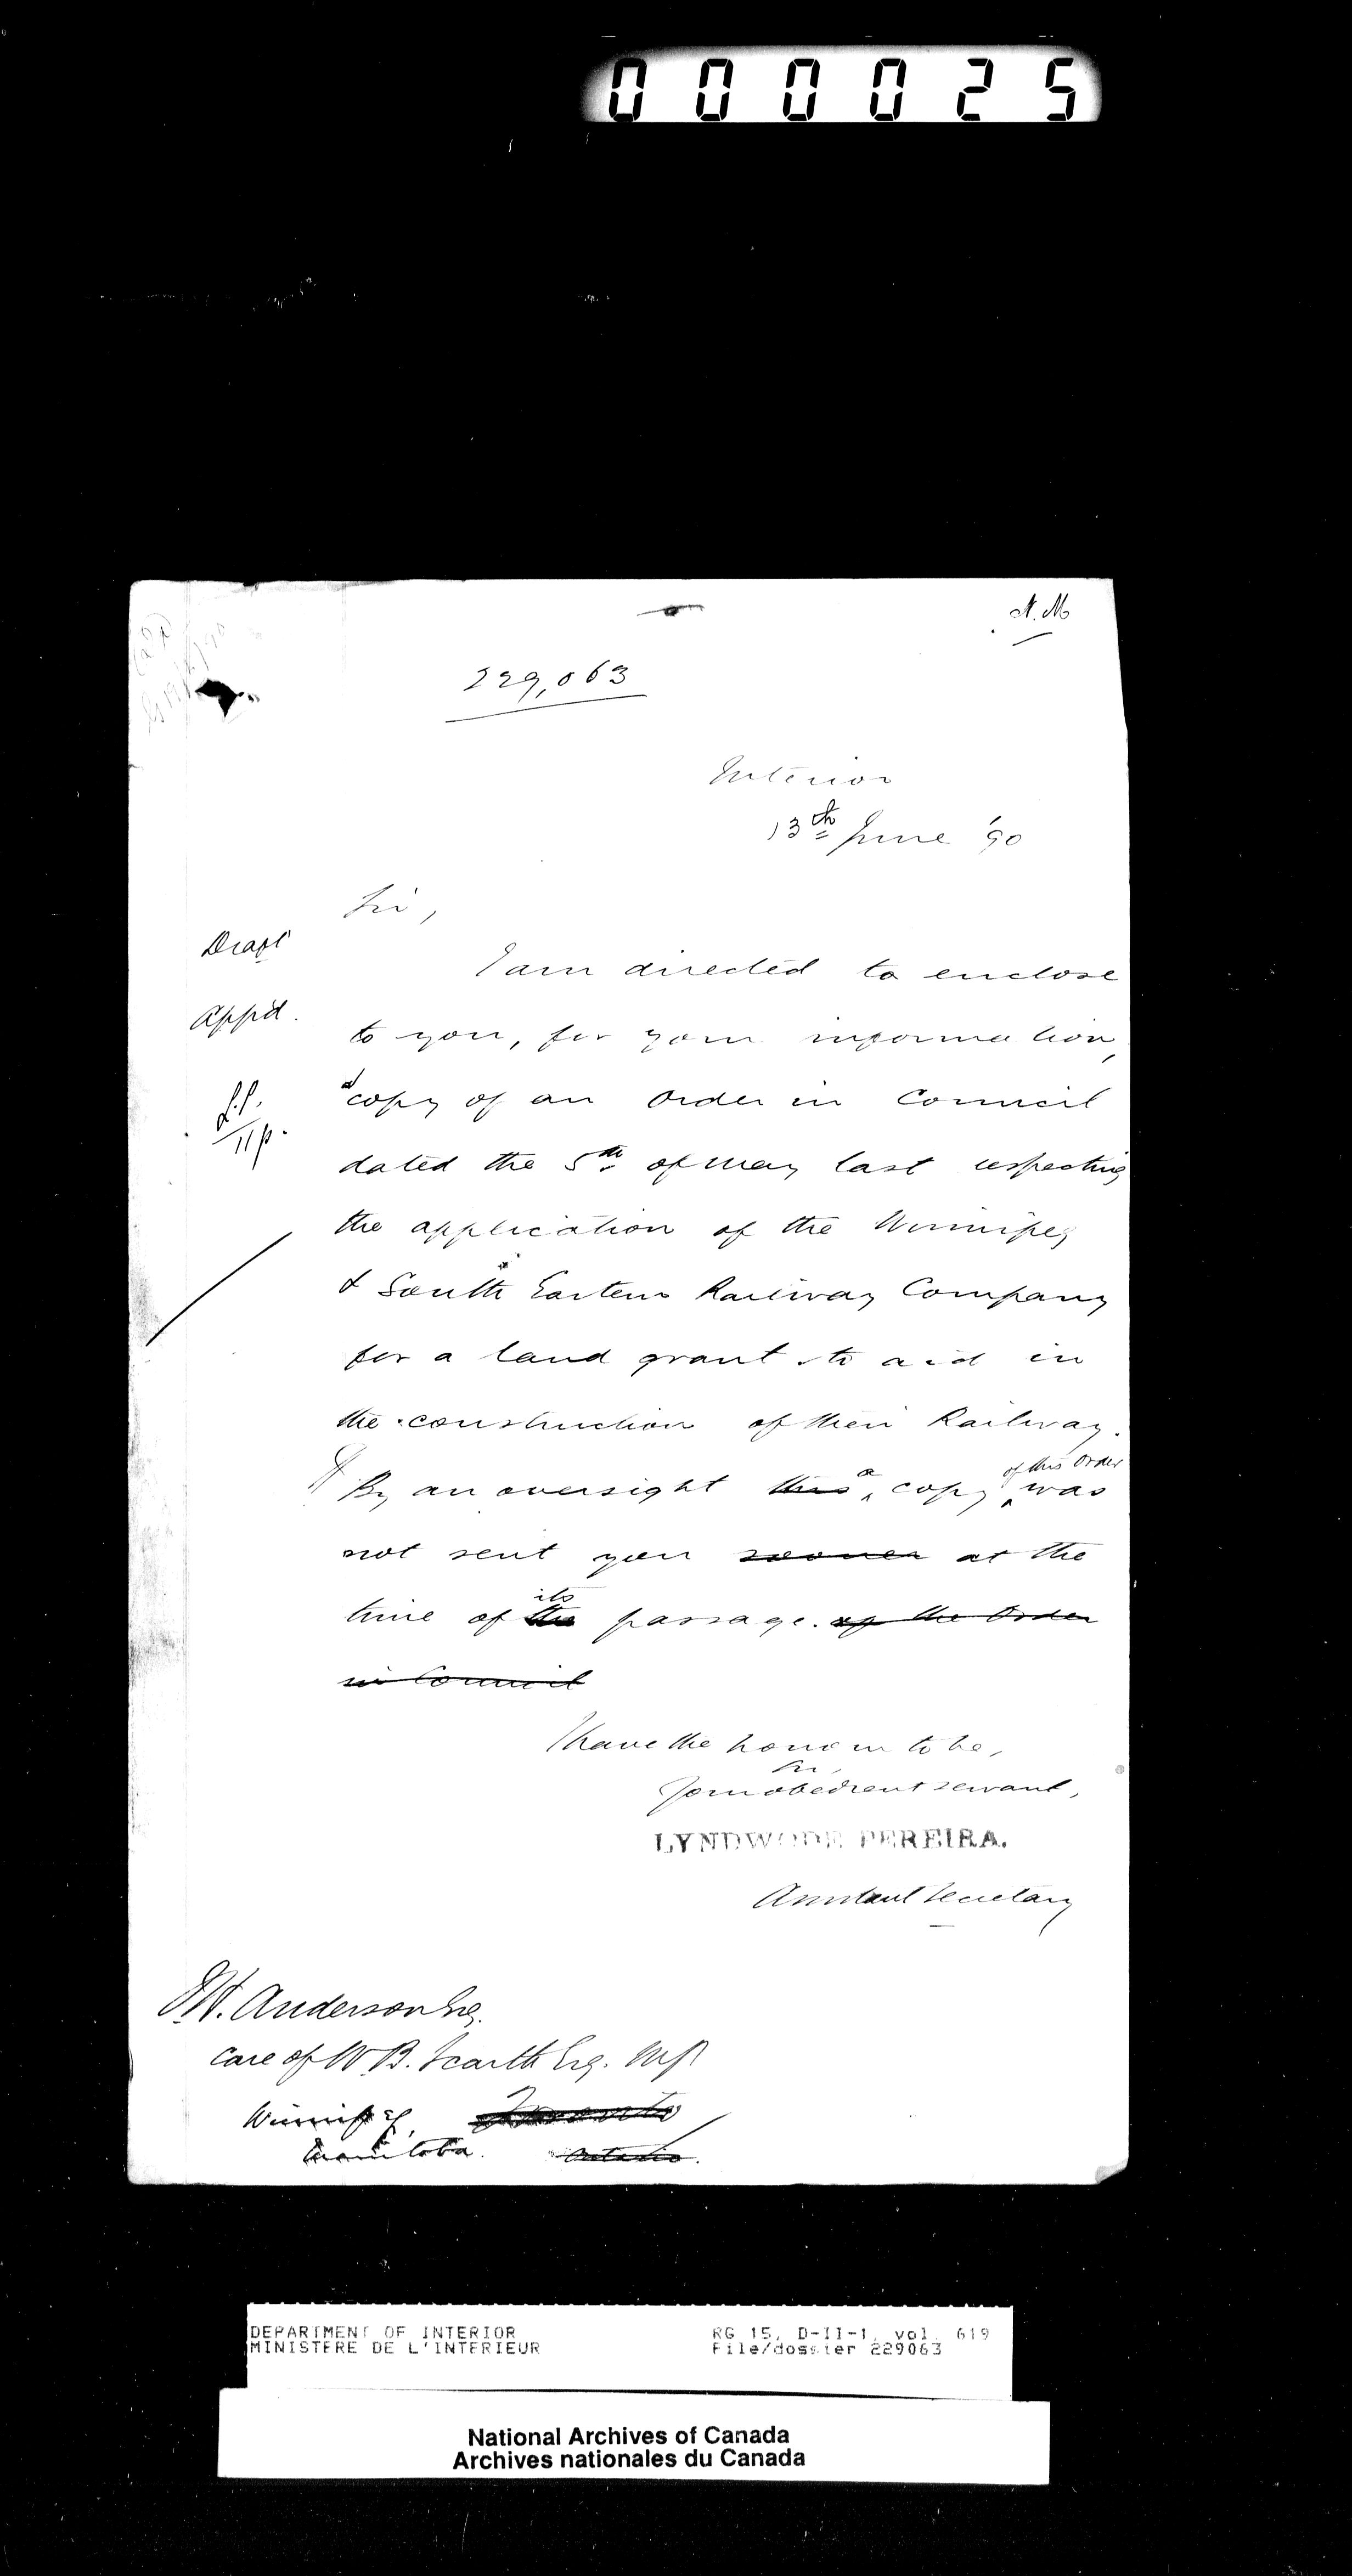 000025
N. M
229,063
Interior
13th June '90
Sir,
Draft
I am directed to enclose
App'd.
to you, for your information,
a copy of an Order in Council
L.P.
dated the 5th of May last respecting
the application of the Winnipeg
& South Eastern Railway Company
for a land grant to aid in
the construction of their Railway.
of this Order
By an oversight this a copy was
not sent you sooner at the
its
time of the passage. of the Order
in Council
I have the honour to be,
Sir,
Your obedient servant,
LYNDWODE PEREIRA.
Assistant Secretary
W. Anderson Esq.
care of W B. Scarth Esq. MP
Winnipeg, Toronto
Manitoba. Ontario.
DEPARTMENT OF INTERIOR
MINISTERE DE L'INTERIEUR
RG 15, D-II-1, vol. 619
File/dossier 229063
National Archives of Canada
Archives nationales du Canada